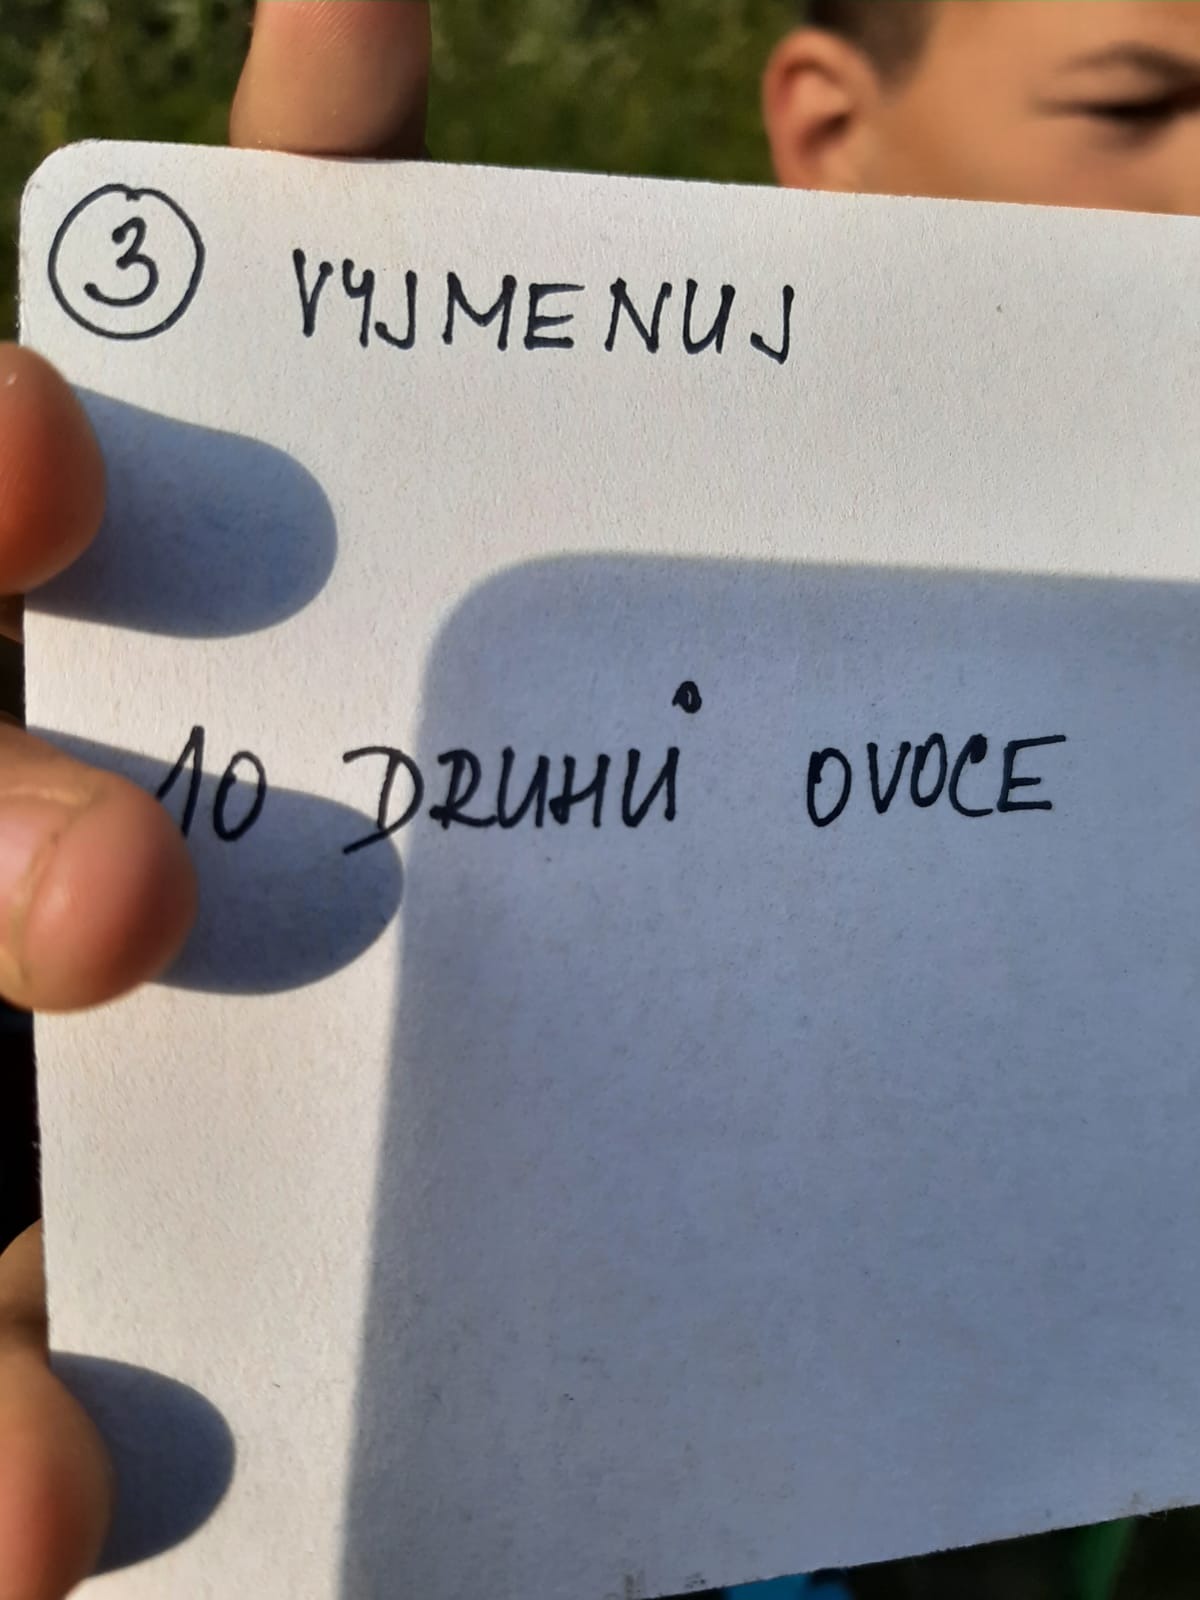 3 VYJMENUJ
10 DRUHŮ OVOCE